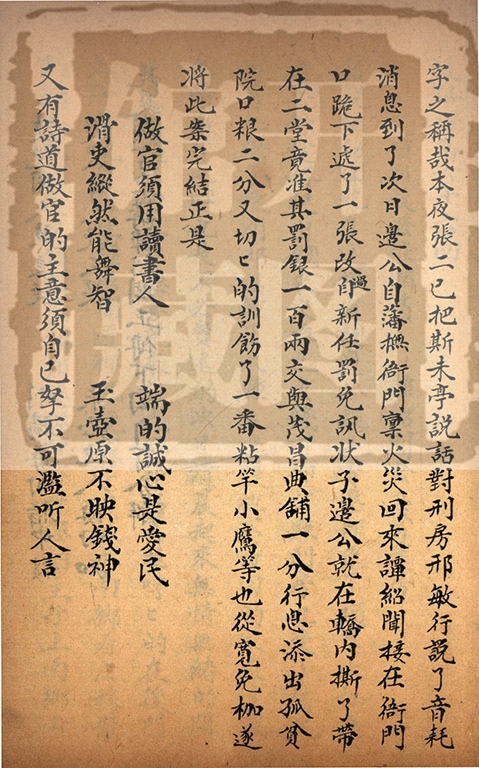 字之称哉本夜張二已把斯未亭説話對刑房邢敏行説了音耗
消息到了次日邊公自藩撫衙門禀火災回來譚紹聞接在衙門
口跪下遞了一張改過自新任罰免訊状子邊公就在轎内撕了帶
在二堂竟准其罰銀一百兩交與茂昌典鋪一分行息添出孤貧
院口粮二分又切匕的訓飭了一番粘竿小鷹等也從寬免枷遂
將此案完結正是
做官須用讀書人 端的誠心是愛民
滑吏縱然能舞智 玉壺原不映錢神
又有詩道做官的主意須自己拏不可濫听人言